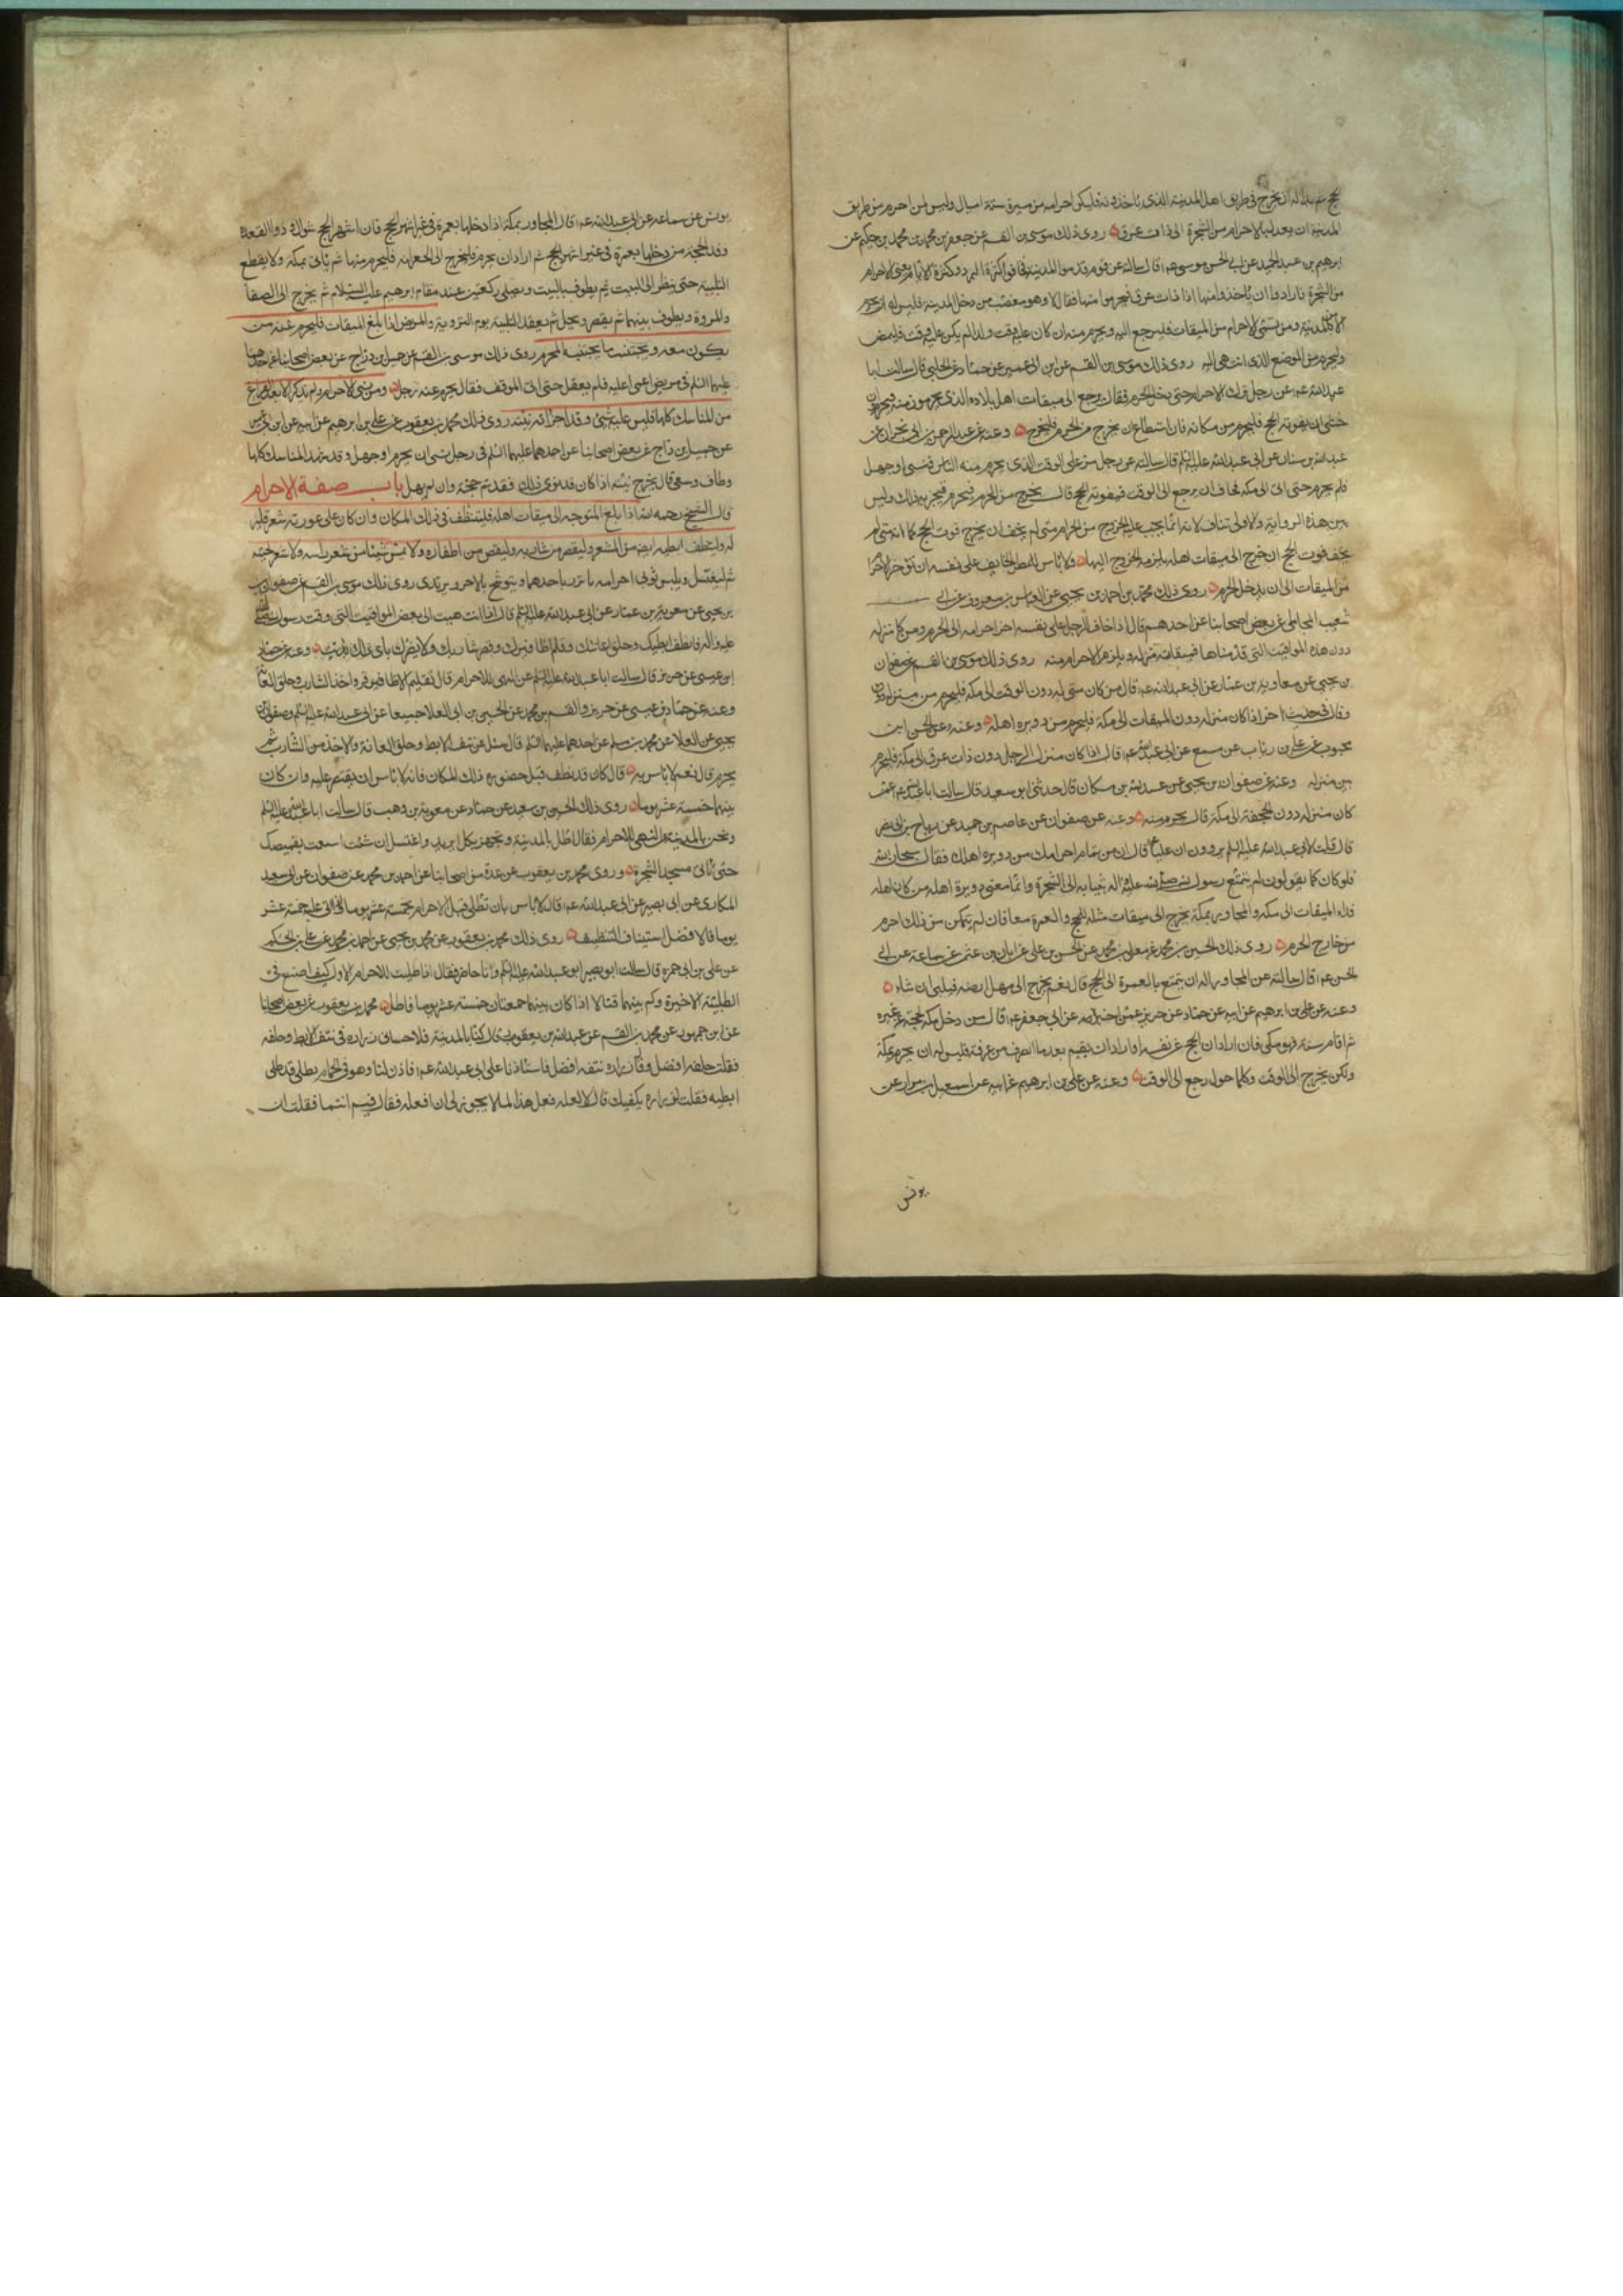 الحج ثم بدا له ان يخرج فى طريق اهل المدينة الذى ياخذونه فليكن احرامه من مسيرة ستة اميال وليس لمن احرم من طريق
المدينة ان يعدل بالاحرام من الشجرة الى ذات عرق روى ذلك موسى بن القسم عن جعفر بن محمد بن حكيم عن
ابرهيم بن عبد الحميد عن ابى الحسن موسى عم قال سالته عن قوم قدموا المدينة فخافوا كثرة البرد وكثرة الايام يعنى الاحرام
من الشجرة فارادوا ان ياخذوا منها اذا ذات عرق فيحرموا منها فقال لا وهو مغضب من دخل المدينة فليس له ان يحرم
الا من المدينة ومن نسى الاحرام من الميقات فليرجع اليه ويحرم منه ان كان عليه وقت وان لم يكن عليه وقت فليمض
وليحرم من الموضع الذى انتهى اليه روى ذلك موسى بن القسم عن ابن ابى عمير عن حماد عن الحلبى قال سالت ابا
عبد الله عم عن رجل ترك الاحرام حتى دخل الحرم فقال يرجع الى ميقات اهل بلاده الذى يحرمون منه فيحرم وان
خشى ان يفوته الحج فليحرم من مكانه فان استطاع ان يخرج من الحرم فليخرج وعنه عن عبد الرحمن بن ابى نجران عن
عبد الله بن سنان عن ابى عبد الله عليه السلم قال سالته عن رجل مر على الوقت الذى يحرم منه الناس فنسى او جهل
فلم يحرم حتى اتى الى مكة فخاف ان يرجع الى الوقت فيفوته الحج قال يخرج من الحرم فيحرم فيجزيه ذلك وليس
بين هذه الرواية والاولى تناف لانه انما يجب عليه الخروج من الحرام متى لم يخف ان يخرج فوت الحج كما انه متى لم
يخف فوت الحج ان خرج الى ميقات اهله يلزمه الخروج اليها ولا باس للمضطر الخايف على نفسه ان يؤخر الاحرام
من الميقات الى ان يدخل الحرم روى ذلك محمد بن احمد بن يحيى عن العباس بن معروف عن ابى
شعيب المحاملى عن بعض اصحابنا عن احدهم قال اذا خاف الرجل على نفسه اخر احرامه الى الحرم ومن كان منزله
دون هذه المواقيت التى قدمناها فميقاته منزله ويلزمه الاحرام منه روى ذلك موسى بن القسم عن صفوان
بن يحيى عن معاوية بن عمار عن ابى عبد الله عم قال من كان منزله دون الوقت الى مكة فليحرم من منزله
وقال فى حديث اخر اذا كان منزله دون الميقات الى مكة فليحرم من دويرة اهله وعنه عن الحسن ابن
محبوب عن على بن رئاب عن مسمع عن ابى عبد الله عم قال اذا كان منزل الرجل دون ذات عرق الى مكة فليحرم
من منزله وعنه عن صفوان بن يحيى عن عبد الله بن مسكان قال حدثنى ابو سعيد قال سالت ابا عبد الله عم عمن
كان منزله دون الجحفة الى مكة قال يحرم منه وعنه عن صفوان عن عاصم بن حميد عن رباح بن ابى نصر
قال قلت لابى عبد الله عليه السلم يروون ان عليا ع قال ان من تمام احرامك من دويرة اهلك فقال سبحان الله
فلو كان كما يقولون لم يتمتع رسول الله صلى الله عليه واله بثيابه الى الشجرة وانما معنى دويرة اهله من كان اهله
وراء الميقات الى مكة والمجاور بمكة يخرج الى ميقات مثله للحج والعمرة معا فان لم يتمكن من ذلك احرم
من خارج الحرم روى ذلك الحسين بن محمد عن معلى بن محمد عن الحسن بن على عن ابان بن عثمن عن سماعة عن ابى
الحسن عم قال سالته عن المجاور اله ان يتمتع بالعمرة الى الحج قال نعم يخرج الى مهل ارضه فيلبى ان شاء
وعنه عن على بن ابرهيم عن ابيه عن حماد عن حريز عمن اخبره عن ابى جعفر عم قال من دخل مكة بحجة عن غيره
ثم اقام سنة فهو مكى فان اراد ان يحج عن نفسه او اراد ان يقيم بعد ما انصرف من عرفة فليس له ان يحرم بمكة
ولكن يخرج الى الوقت وكلما حول رجع الى الوقت وعنه عن على بن ابرهيم عن ابيه عن اسمعيل بن مرار عن
يونس
يونس عن سماعة عن ابى عبد الله عم قال المجاور بمكة اذا دخلها بعمرة فى غير اشهر الحج فان اشهر الحج شوال وذو القعدة
وذو الحجة من دخلها بعمرة فى غير اشهر الحج ثم اراد ان يحرم فليخرج الى الجعرانة فليحرم منها ثم ياتى بمكة ولا يقطع
التلبية حتى ينظر الى البيت ثم يطوف بالبيت ويصلى ركعتين عند مقام ابرهيم عليه السلام ثم يخرج الى الصفا
والمروة ويطوف بينهما ثم يقصر ويحل ثم يعقد التلبية يوم التروية والمريض اذا بلغ الميقات فليحرم عنه من
يكون معه ويجتنب ما يجتنبه المحرم روى ذلك موسى بن القسم عن جميل بن دراج عن بعض اصحابنا عن احدهما
عليهما السلم فى مريض اغمى عليه فلم يعقل حتى اتى الموقف فقال يحرم عنه رجل ومن نسى الاحرام ولم يذكر الا بعد الفراغ
من المناسك كلها فليس عليه شئ وقد اجزاته نيته روى ذلك محمد بن يعقوب عن على بن ابرهيم عن ابيه عن ابن ابى عمير
عن جميل بن دراج عن بعض اصحابنا عن احدهما عليهما السلم فى رجل نسى ان يحرم او جهل وقد شهد المناسك كلها
وطاف وسعى قال يجزيه نيته اذا كان قد نوى ذلك فقد تم حجه وان لم يهل باب صفة الاحرام
قال الشيخ رحمه الله اذا بلغ المتوجه الى ميقات اهله فليتنظف فى ذلك المكان وان كان على عورته شعر فليزله
وليتنظف ابطيه ايضا من الشعر وليقص من شاربه وليقص من اظفاره ولا يمس شيئا من شعر راسه ولا شعر لحيته
ثم ليغتسل ويلبس ثوبى احرامه ياتزر باحدهما ويتوشح بالاخر ويرتدى روى ذلك موسى بن القسم عن صفوان
بن يحيى عن معوية بن عمار عن ابى عبد الله عليه السلم قال اذا انتهيت الى بعض المواقيت التى وقت رسول الله صلى الله
عليه واله فانتف ابطيك واحلق عانتك وقلم اظافيرك وقص شاربك ولا يضرك باى ذلك بدات وعنه عن حماد
ابن عيسى عن حريز قال سالت ابا عبد الله عليه السلم عن التهيئ للاحرام قال تقليم الاظافير واخذ الشارب وحلق العانة
وعنه عن حماد بن عيسى عن حريز والقسم بن محمد عن الحسين بن ابى العلا جميعا عن ابى عبد الله عليه السلم وصفوان بن
يحيى عن العلا عن محمد بن مسلم عن احدهما عليهما السلم قال سئل عن نتف الابط وحلق العانة والاخذ من الشارب ثم
يحرم قال نعم لا باس به قال كان قد نظف قبل حضوره ذلك المكان فانه لا باس ان يقتصر عليه وان كان
بينهما خمسة عشر يوما روى ذلك الحسين بن سعيد عن حماد عن معوية بن وهب قال سالت ابا عبد الله عليه السلم
ونحن بالمدينة عن التهيئ للاحرام فقال اطل بالمدينة وتجهز بكل ما تريد واغتسل ان شئت استمتعت بقميصك
حتى تاتى مسجد الشجرة وروى محمد بن يعقوب عن عدة من اصحابنا عن احمد بن محمد عن صفوان عن ابى سعيد
المكارى عن ابى بصير عن ابى عبد الله عم قال لا باس بان تطلى قبل الاحرام بخمسة عشر يوما فاذا اتى عليه خمسة عشر
يوما فالافضل استيناف التنظيف روى ذلك محمد بن يعقوب عن محمد بن يحيى عن احمد بن محمد عن على بن الحكم
عن على بن ابى حمزة قال سالت ابو بصير ابو عبد الله عليه السلم وانا حاضر فقال اذا طليت للاحرام الاول كيف اصنع فى
الطلية الاخيرة وكم بينهما قال اذا كان بينهما جمعتان خمسة عشر يوما فاطل محمد بن يعقوب عن بعض اصحابنا
عن ابن جمهور عن محمد بن القسم عن عبد الله بن يعقوب قال كنا بالمدينة فلاحانى زراره فى نتف الابط وحلقه
فقلت حلقه افضل وقال زراره نتفه افضل فاستاذنا على ابى عبد الله عم فاذن لنا وهو فى الحمام يطلى قد طلى
ابطيه فقلت لزراره يكفيك قال لا لعله فعل هذا لما لا يجوز لى ان افعله فقال فيم انتما فقلت ان